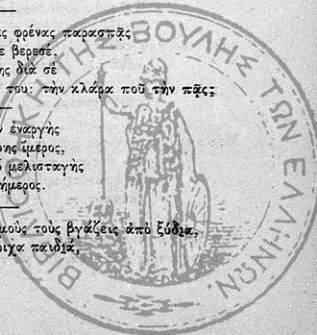 ς φρένας παρασπᾷς
ε βερεσέ,
ης διὰ σὲ
του: τὴν κλάρα ποῦ τὴν πᾷς;
ν ἐναργὴς
ης ἵμερος,
μελισταγὴς
ήμερος.
μοὺς τοὺς βγάζεις ἀπὸ ξύδια,
ριχα παιδιά,
ΒΙΒΛΙΟΘΗΚΗ ΤΗΣ ΒΟΥΛΗΣ ΤΩΝ ΕΛΛΗΝΩΝ